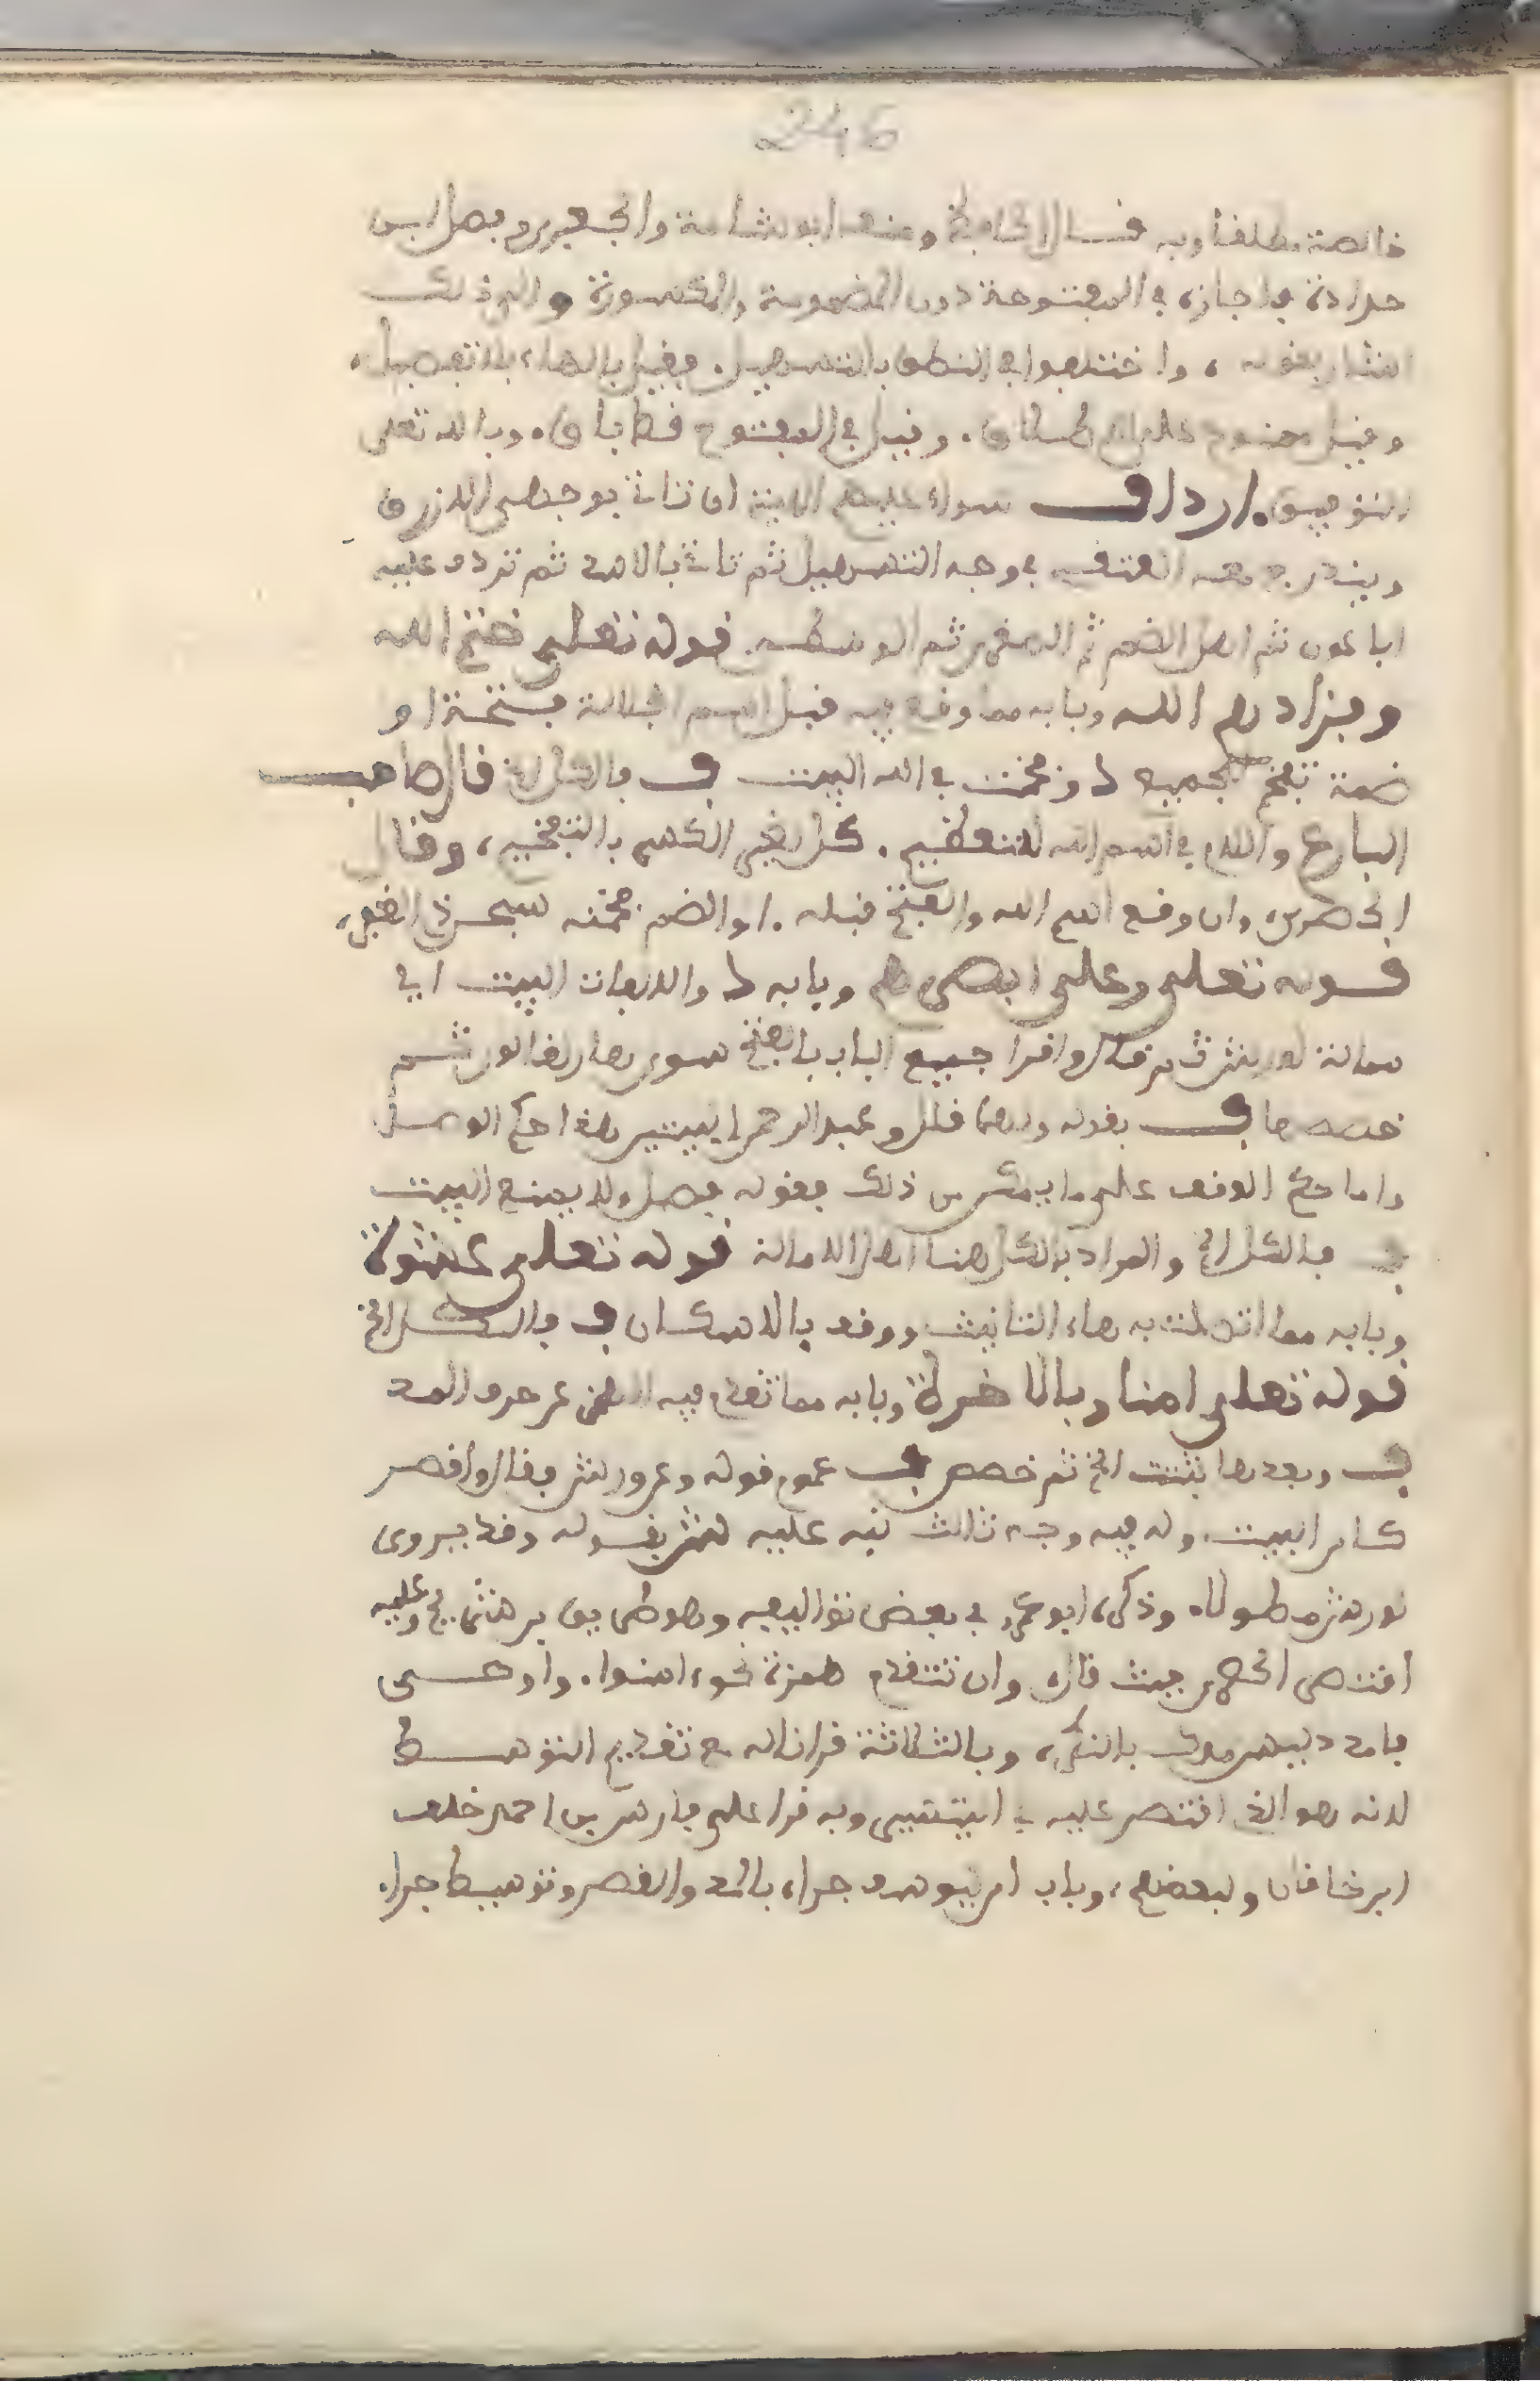 246
خالصة مطلقا وبه قال الحافظ ومنعه ابو شامة والجعبري وفصل ابن
حدادة فاجازه في المفتوحة دون المضمومة والمكسورة والى ذلك
اشار بقوله ، واختلفوا في النطق بالتسهيل . فقيل بالهاء بلا تفصيل ،
وقيل ممنوع على الاطلاق . وقيل في المفتوح قط باق . وبالله تعلى
التوفيق . ارداف سواء عليهم الاية ان تات بوجهي الازرق
ويندرج معه في وجه التسهيل ثم تات بالامد ثم تردف عليه
ابا عون ثم اهل الضم ثم ثم الوسط . قوله تعلى ختم الله
وفزادهم الله وبابه مما وقع فيه قبل اسم الجلالة فتحة او
ضمة تفخم لجميعهم د وفخمت في الله البيت ق فالكل الخ قال صاحب
البارع واللام في اسم الله للتعظيم . كل بغير الكسر بالتفخيم ، وقال
الحصري ، وان وقع اسم الله والفتح قبله . او الضم فخمه
قوله تعلى وعلى ابصرهم وبابه د والالفات البيت اي
ممالة لورش ق قالوا قرا جميع الباب بالفتح سوى هار لقالون ثم
خصصها ق بقوله ولهما قلل وعبد الرحمن البيتين هذا حكم الوصل
واما حكم الوقف على ما يمكن من ذلك فقوله فصل ولا يمنع البيت
ق فالكل الخ والمراد بالكل هنا اهل الامالة قوله تعلى غشوة
وبابه مما اتصلت به هاء التانيث ووقف بالاسكان ق فالكل الخ
قوله تعلى امنا وبالاخرة وبابه مما تقدم فيه الهمز عن حرف المد
ق وبعدها ثبتت الخ ثم خصص ق عموم قوله وعن ورش فقال واقصر
كامن البيت وله فيه وجه ثالث نبه عليه بقوله وقد يروى
لورش مطولا . وذكره ابو عمرو في بعض تواليفه وهو طريق ابن وعليه
اقتصر الحصري حيث قال ، وان تتقدم همزة نحو ءامنوا . واوحى
فامدد ليس مدك بالنكر ، وبالثلاثة قرانا له مع تقديم التوسط
لانه هو الذي اقتصر عليه في التيسير وبه قرا على فارس بن احمد وخلف
ابن خاقان ولبعضهم ، وباب امن ليوسف جرا ، بالمد والقصر وتوسيط جرا .